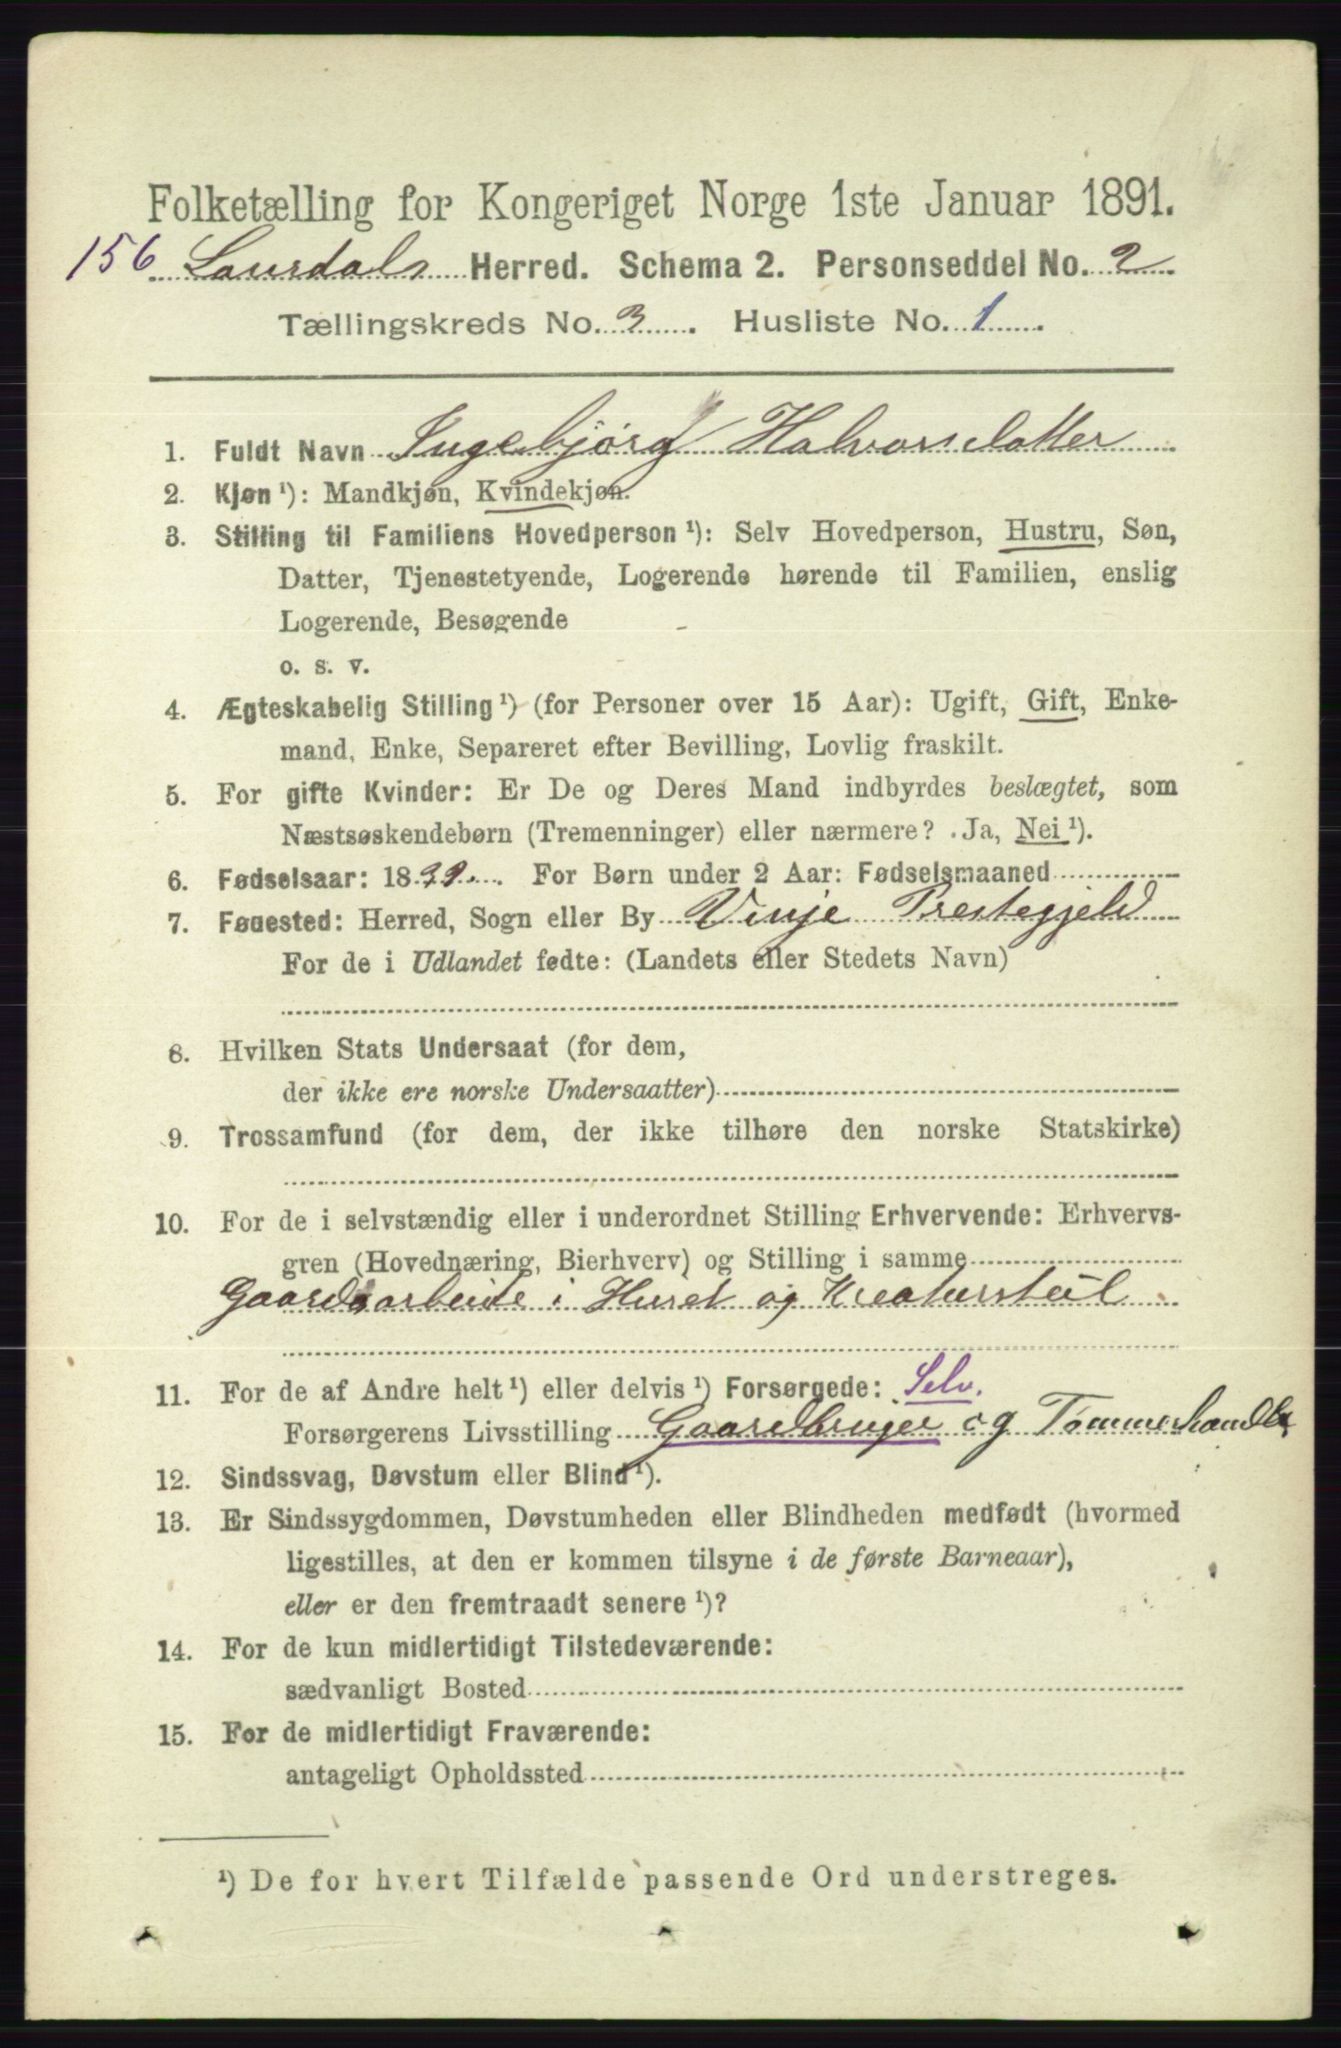 Folketælling for Kongeriget Norge 1ste Januar 1891.
156 Laurdals Herred. Schema 2. Personseddel No. 2
Tællingskreds No. 3. Husliste No. 1.
1. Fuldt Navn Ingebjørg Halvorsdatter
2. Kjøn ¹): Mandkjøn, Kvindekjøn.
3. Stilling til Familiens Hovedperson ¹): Selv Hovedperson, Hustru, Søn,
Datter, Tjenestetyende, Logerende hørende til Familien, enslig
Logerende, Besøgende
o. s. v.
4. Ægteskabelig Stilling ¹) (for Personer over 15 Aar): Ugift, Gift, Enke-
mand, Enke, Separeret efter Bevilling, Lovlig fraskilt.
5. For gifte Kvinder: Er De og Deres Mand indbyrdes beslægtet, som
Næstsøskendebørn (Tremenninger) eller nærmere? Ja, Nei ¹).
6. Fødselsaar: 1839. For Børn under 2 Aar: Fødselsmaaned
7. Fødested: Herred, Sogn eller By Vinje Prestegjeld
For de i Udlandet fødte: (Landets eller Stedets Navn)
8. Hvilken Stats Undersaat (for dem,
der ikke ere norske Undersaatter)
9. Trossamfund (for dem, der ikke tilhøre den norske Statskirke)
10. For de i selvstændig eller i underordnet Stilling Erhvervende: Erhvervs-
gren (Hovednæring, Bierhverv) og Stilling i samme
Gaardsarbeide i Huset og Kreaturstel
11. For de af Andre helt ¹) eller delvis ¹) Forsørgede: Selv.
Forsørgerens Livsstilling Gaardbruger og Tømmerhandler
12. Sindssvag, Døvstum eller Blind ¹).
13. Er Sindssygdommen, Døvstumheden eller Blindheden medfødt (hvormed
ligestilles, at den er kommen tilsyne i de første Barneaar),
eller er den fremtraadt senere ¹)?
14. For de kun midlertidigt Tilstedeværende:
sædvanligt Bosted
15. For de midlertidigt Fraværende:
antageligt Opholdssted
¹) De for hvert Tilfælde passende Ord understreges.